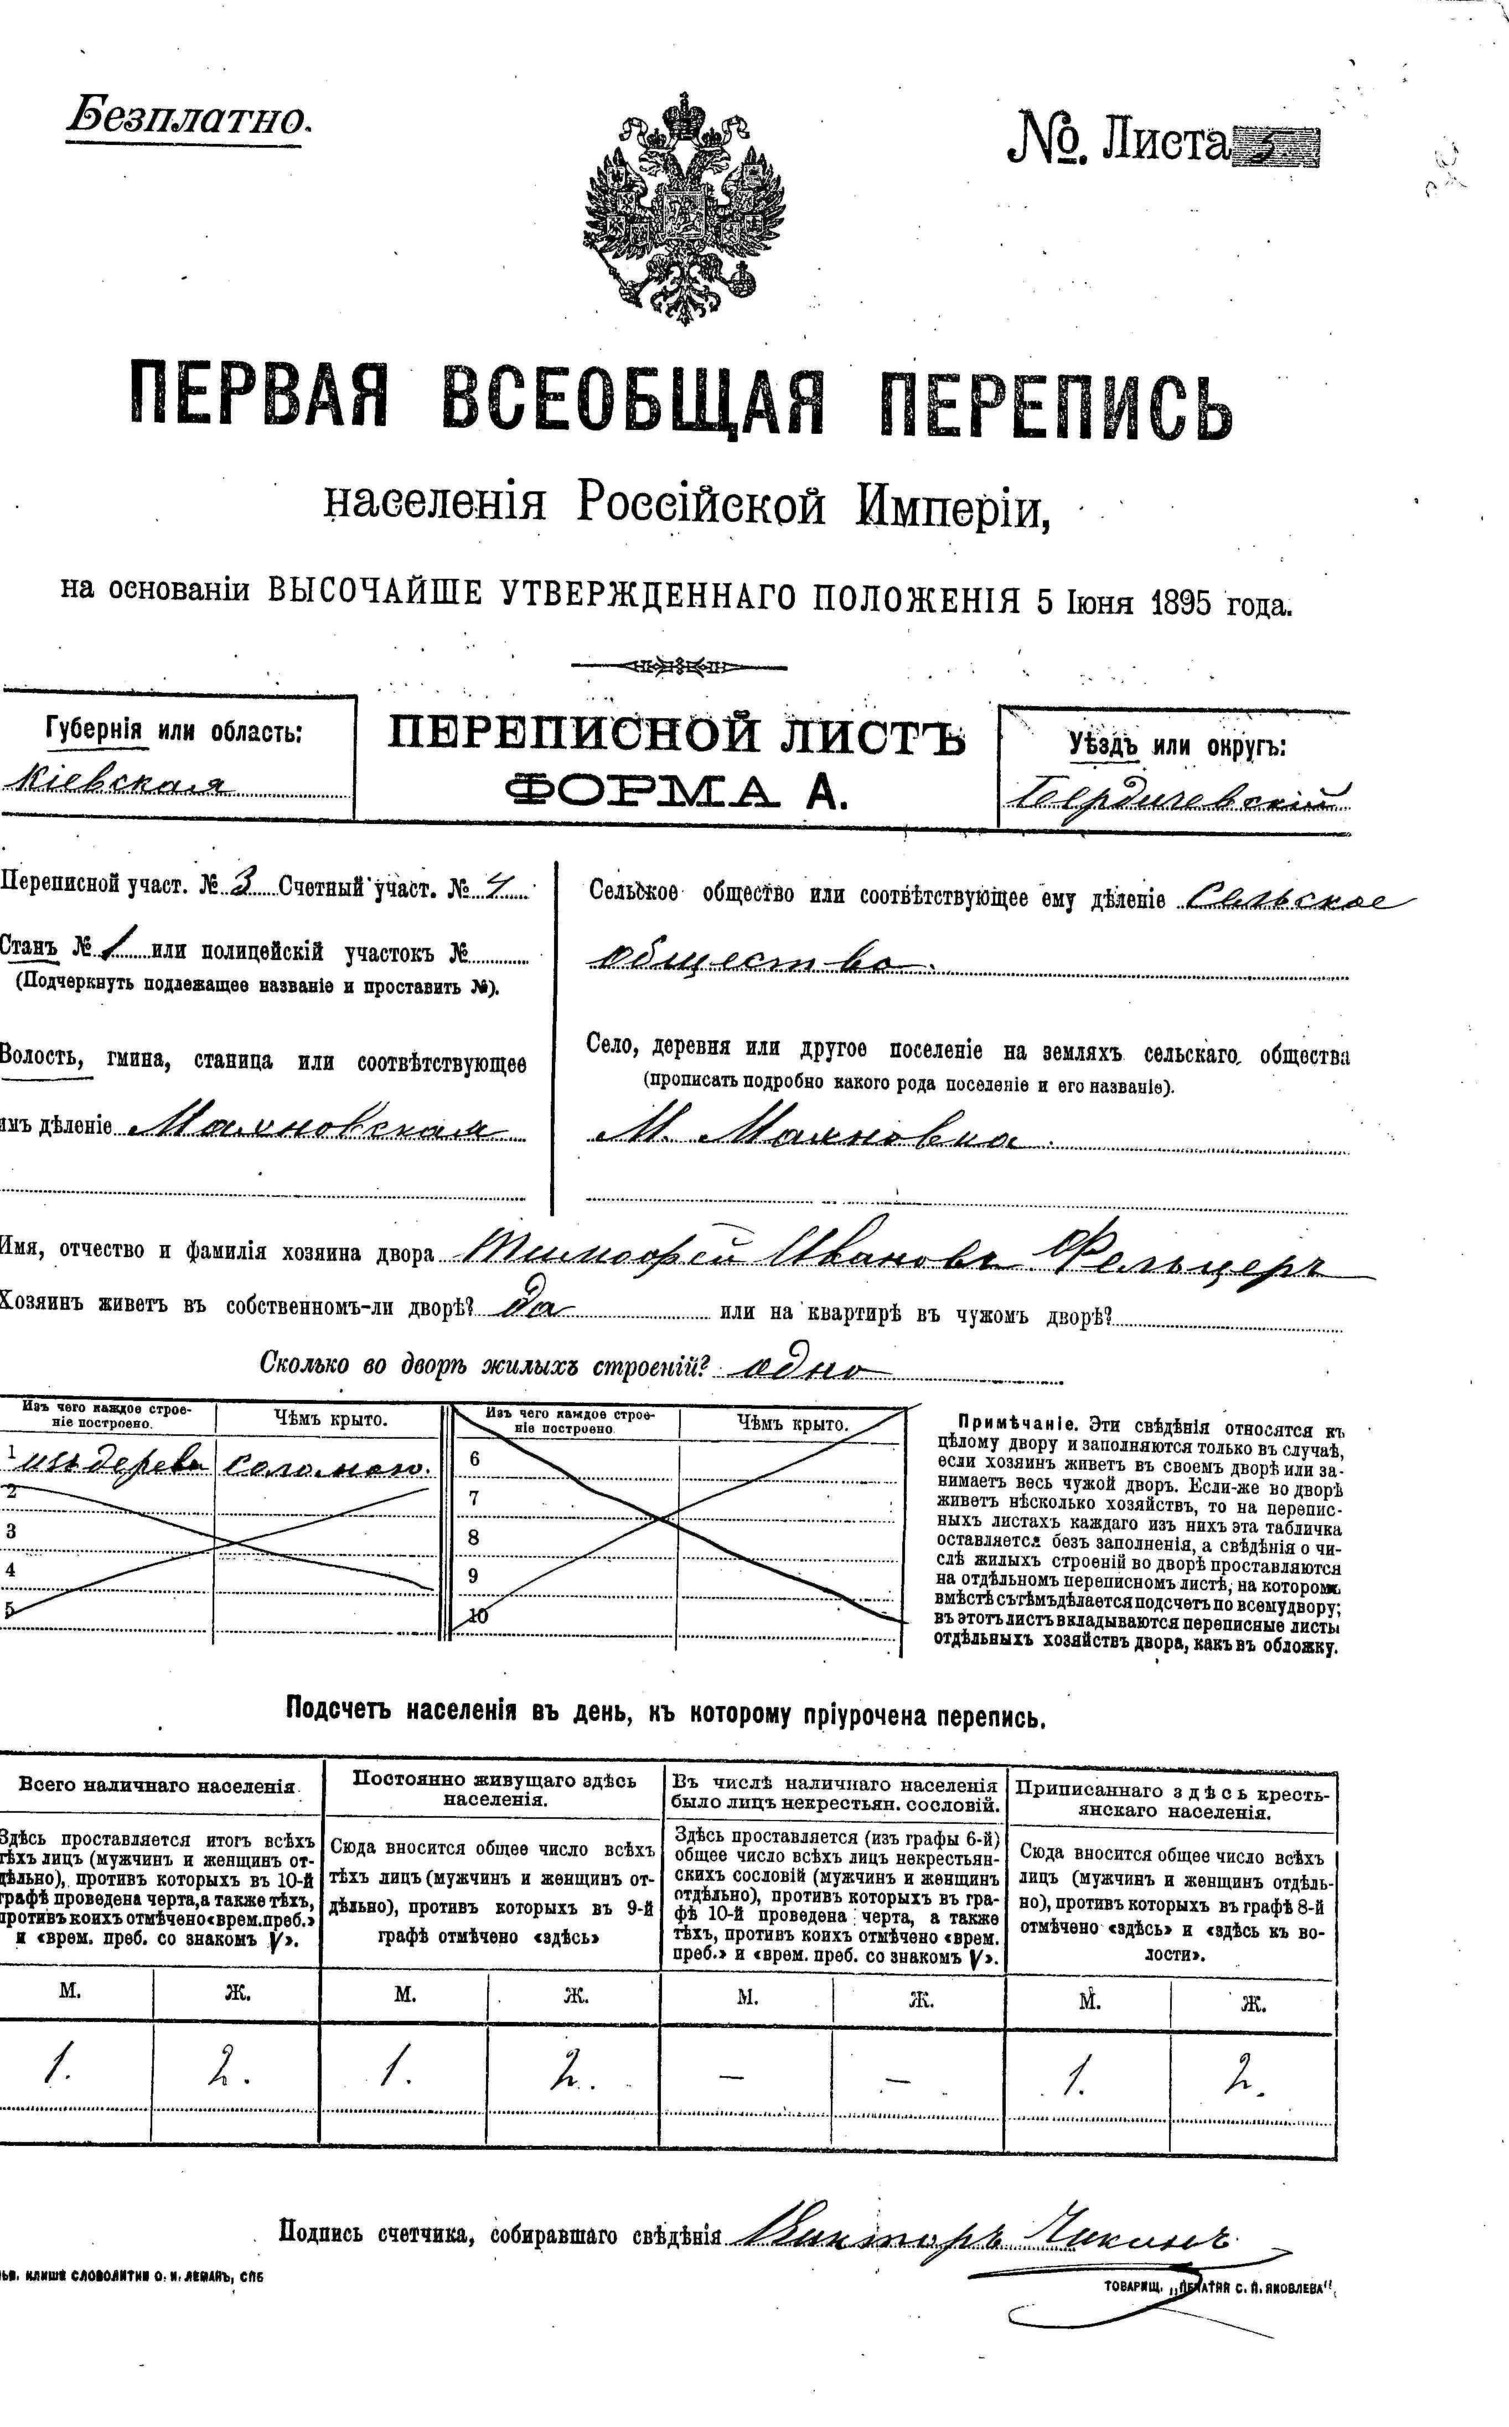 Безплатно.
№. Листа 5
ПЕРВАЯ ВСЕОБЩАЯ ПЕРЕПИСЬ
населенія Россійской Имперіи,
на основаніи ВЫСОЧАЙШЕ УТВЕРЖДЕННАГО ПОЛОЖЕНІЯ 5 Іюня 1895 года.
Губернія или область:
Кіевская
ПЕРЕПИСНОЙ ЛИСТЪ
ФОРМА А.
Уѣздъ или округъ:
Бердичевскій
Переписной участ. № 3 Счетный участ. № 4
Станъ № 1 или полицейскій участокъ №
(Подчеркнуть подлежащее названіе и проставить №).
Волость, гмина, станица или соотвѣтствующее
имъ дѣленіе Махновская
Сельское общество или соотвѣтствующее ему дѣленіе Сельское
общество.
Село, деревня или другое поселеніе на земляхъ сельскаго общества
(прописать подробно какого рода поселеніе и его названіе).
М. Махновка.
Имя, отчество и фамилія хозяина двора Тимофей Ивановъ Фельцеръ
Хозяинъ живетъ въ собственномъ-ли дворѣ? да или на квартирѣ въ чужомъ дворѣ?
Сколько во дворѣ жилыхъ строеній? одно
Изъ чего каждое строе-
ніе построено.
Чѣмъ крыто.
1 изъ дерева соломою.
2
3
4
5
Изъ чего каждое строе-
ніе построено
Чѣмъ крыто.
6
7
8
9
10
Примѣчаніе. Эти свѣдѣнія относятся къ
цѣлому двору и заполняются только въ случаѣ,
если хозяинъ живетъ въ своемъ дворѣ или за-
нимаетъ весь чужой дворъ. Если-же во дворѣ
живетъ нѣсколько хозяйствъ, то на перепис-
ныхъ листахъ каждаго изъ нихъ эта табличка
оставляется безъ заполненія, а свѣдѣнія о чи-
слѣ жилыхъ строеній во дворѣ проставляются
на отдѣльномъ переписномъ листѣ, на которомъ
вмѣстѣ съ тѣмъ дѣлается подсчетъ по всему двору;
въ этотъ листъ вкладываются переписные листы
отдѣльныхъ хозяйствъ двора, какъ въ обложку.
Подсчетъ населенія въ день, къ которому пріурочена перепись.
Всего наличнаго населенія
Здѣсь проставляется итогъ всѣхъ
тѣхъ лицъ (мужчинъ и женщинъ от-
дѣльно), противъ которыхъ въ 10-й
графѣ проведена черта, а также тѣхъ,
противъ коихъ отмѣчено «врем. преб.»
и «врем. преб. со знакомъ V».
Постоянно живущаго здѣсь
населенія.
Сюда вносится общее число всѣхъ
тѣхъ лицъ (мужчинъ и женщинъ от-
дѣльно), противъ которыхъ въ 9-й
графѣ отмѣчено «здѣсь»
Въ числѣ наличнаго населенія
было лицъ некрестьян. сословій.
Здѣсь проставляется (изъ графы 6-й)
общее число всѣхъ лицъ некрестьян-
скихъ сословій (мужчинъ и женщинъ
отдѣльно), противъ которыхъ въ гра-
фѣ 10-й проведена черта, а также
тѣхъ, противъ коихъ отмѣчено «врем.
преб.» и «врем. преб. со знакомъ V».
Приписаннаго здѣсь кресть-
янскаго населенія.
Сюда вносится общее число всѣхъ
лицъ (мужчинъ и женщинъ отдѣль-
но), противъ которыхъ въ графѣ 8-й
отмѣчено «здѣсь» и «здѣсь къ во-
лости».
М. Ж. М. Ж. М. Ж. М. Ж.
1. 2. 1. 2. — — 1. 2.
Подпись счетчика, собиравшаго свѣдѣнія Викторъ
КЛИШЕ СЛОВОЛИТНИ О. И. ЛЕМАНЪ, СПБ
ТОВАРИЩ. „ПЕЧАТНЯ С. П. ЯКОВЛЕВА"